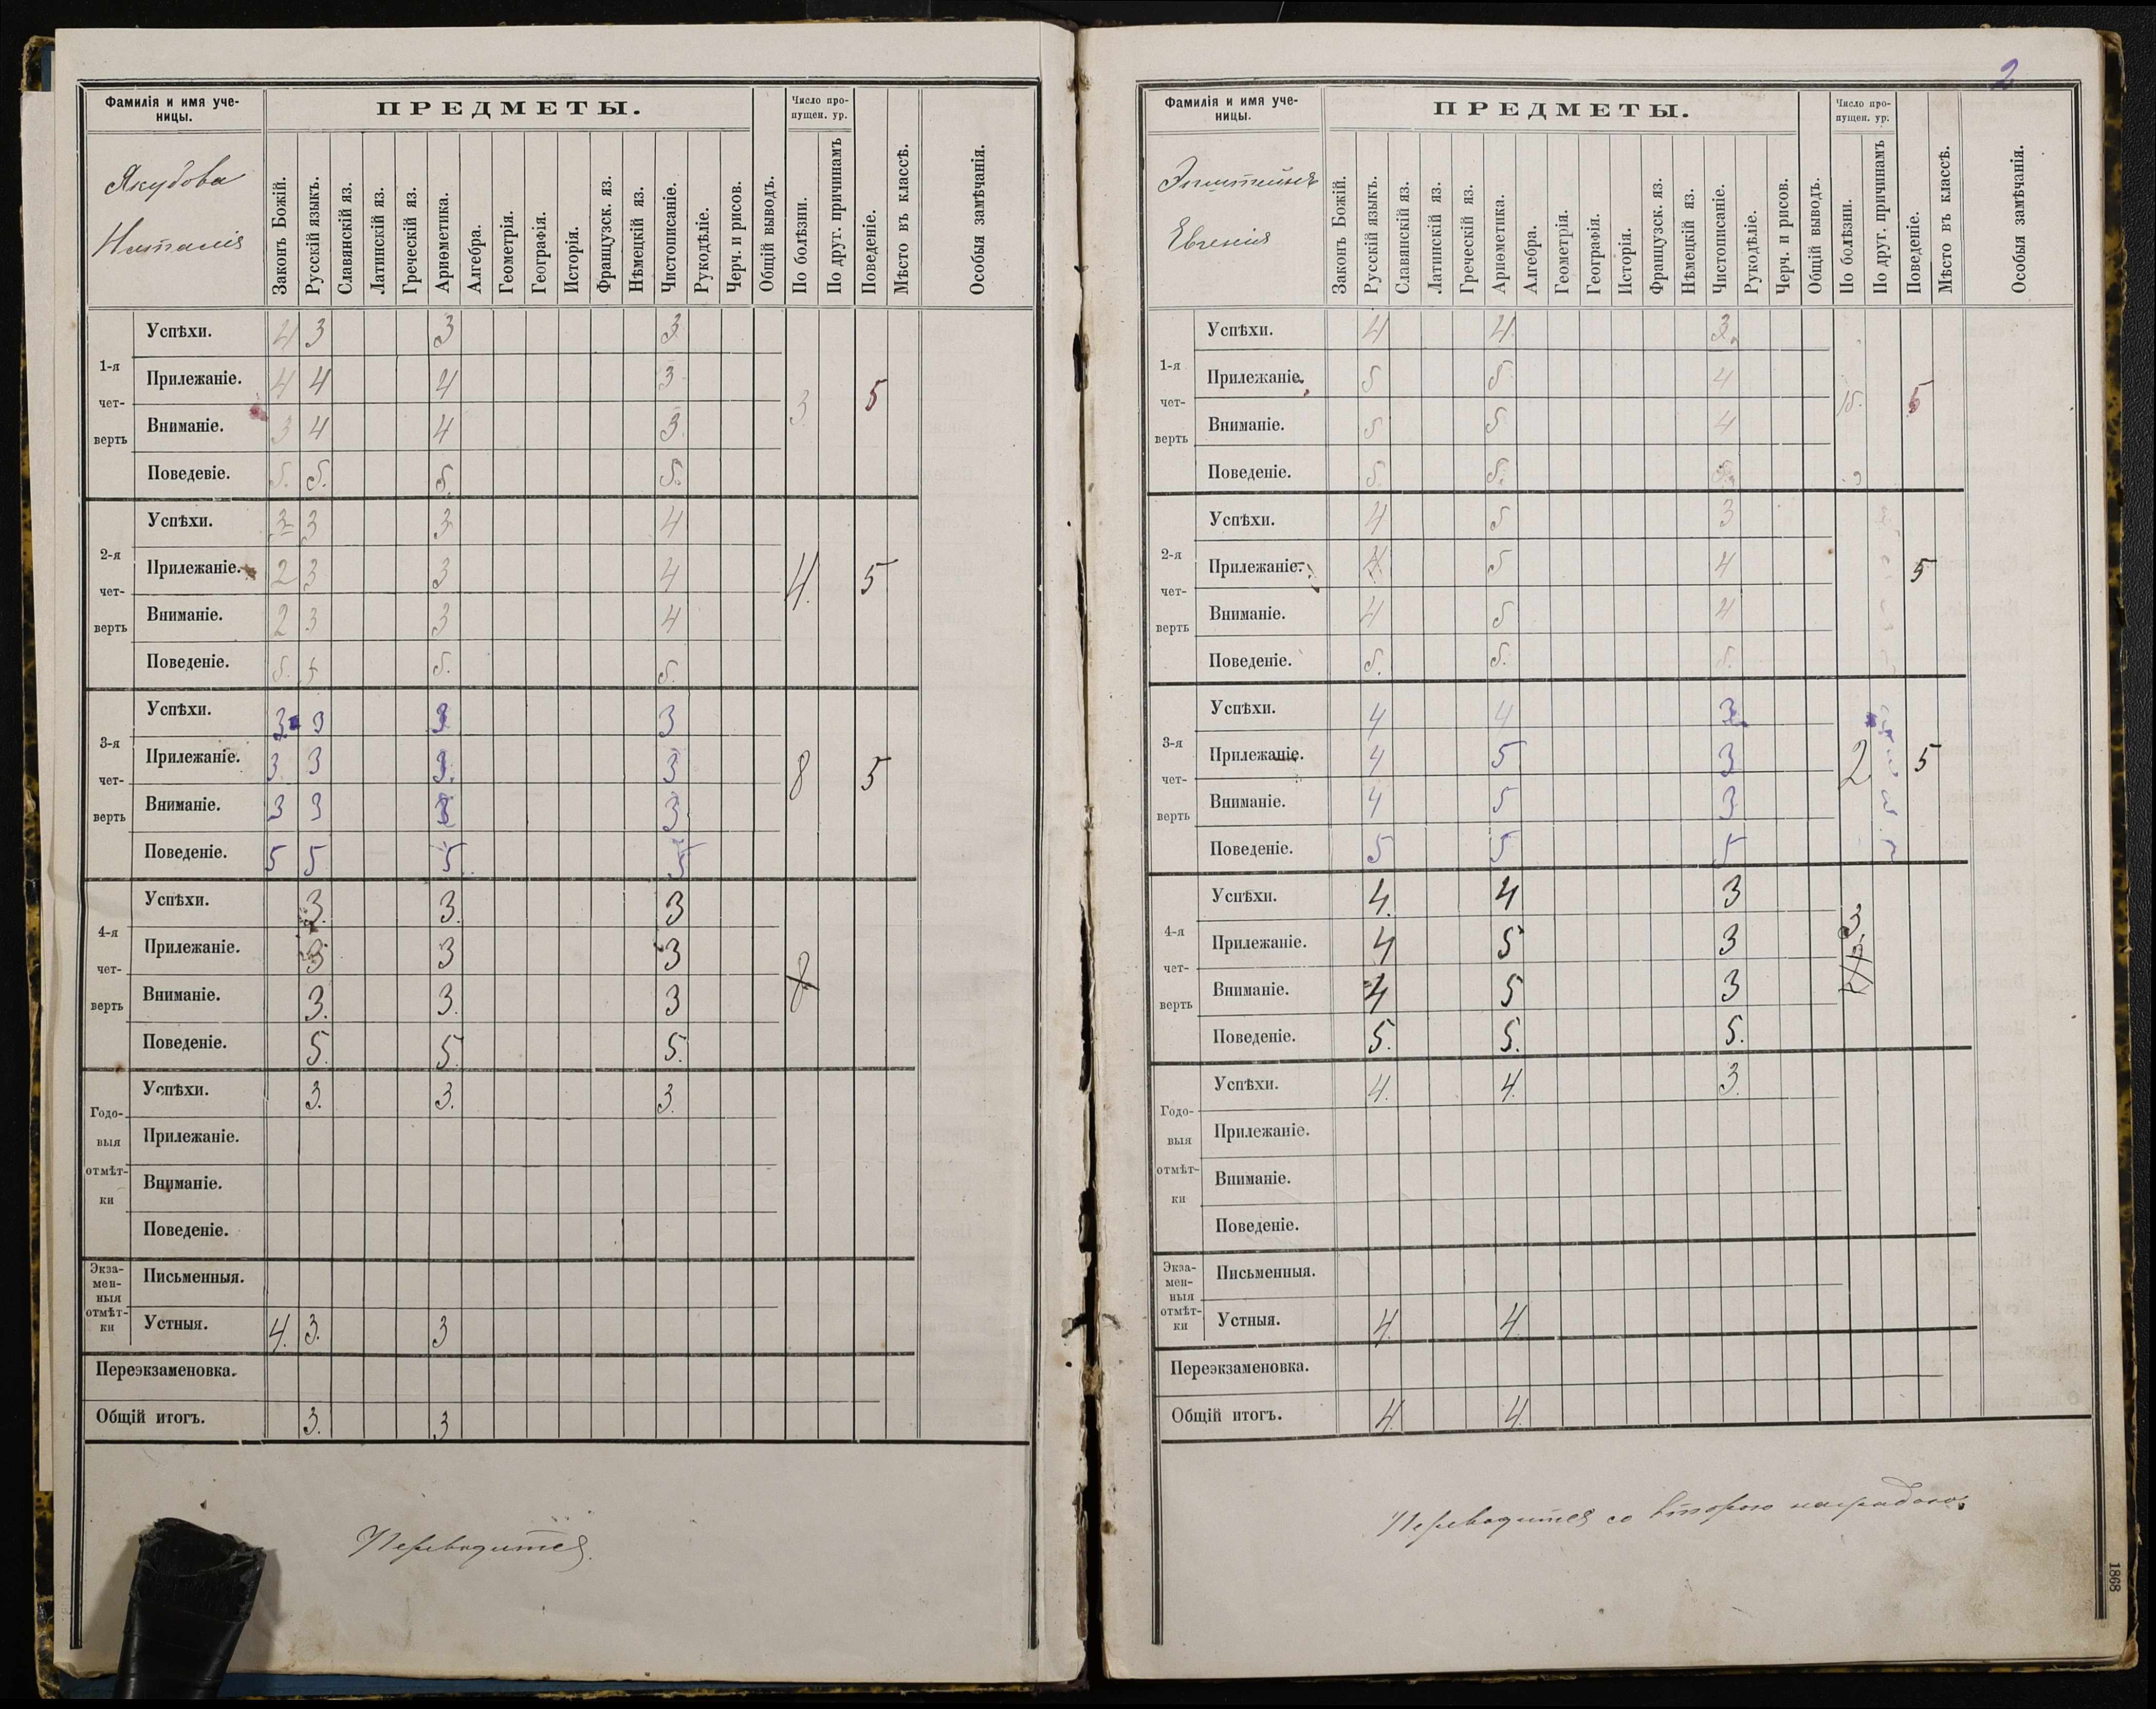 Фамилія и имя уче-
ницы.
ПРЕДМЕТЫ.
Число про-
пущен. ур.
Якубова
Наталія
Законъ Божій.
Русскій языкъ.
Славянскій яз.
Латинскій яз.
Греческій яз.
Ариѳметика.
Алгебра.
Геометрія.
Географія.
Исторія.
Французск. яз.
Нѣмецкій яз.
Чистописаніе.
Рукодѣліе.
Черч. и рисов.
Общій выводъ.
По болѣзни.
По друг. причинамъ
Поведеніе.
Мѣсто въ классѣ.
Особыя замѣчанія.
1-я чет- верть
Успѣхи. 4 3 3 3
Прилежаніе. 4 4 4 3
3 5
Вниманіе. 3 4 4 3
Поведевіе. 5. 5. 5. 5.
2-я чет- верть
Успѣхи. 3 3 3 4
Прилежаніе. 2 3 3 4
4. 5
Вниманіе. 2 3 3 4
Поведеніе. 5. 5 5. 5.
3-я чет- верть
Успѣхи. 3 3 3 3
Прилежаніе. 3 3 3. 3
8 5
Вниманіе. 3 3 3 3
Поведеніе. 5 5 5 5
4-я чет- верть
Успѣхи. 3. 3. 3
Прилежаніе. 3 3 3
8
Вниманіе. 3. 3. 3
Поведеніе. 5. 5. 5.
Годо- выя отмѣт- ки
Успѣхи. 3. 3. 3.
Прилежаніе.
Вниманіе.
Поведеніе.
Экза- мен- ныя отмѣт- ки
Письменныя.
Устныя. 4. 3. 3
Переэкзаменовка.
Общій итогъ. 3. 3
Переводится.
2
Фамилія и имя уче-
ницы.
ПРЕДМЕТЫ.
Число про-
пущен. ур.
Эпштейнъ
Евгенія
Законъ Божій.
Русскій языкъ.
Славянскій яз.
Латинскій яз.
Греческій яз.
Ариѳметика.
Алгебра.
Геометрія.
Географія.
Исторія.
Французск. яз.
Нѣмецкій яз.
Чистописаніе.
Рукодѣліе.
Черч. и рисов.
Общій выводъ.
По болѣзни.
По друг. причинамъ
Поведеніе.
Мѣсто въ классѣ.
Особыя замѣчанія.
1-я чет- верть
Успѣхи. 4 4. 3.
Прилежаніе. 5 5 4
15. 5
Вниманіе. 5 5 4
Поведеніе. 5. 5. 5.
2-я чет- верть
Успѣхи. 4 5 3
Прилежаніе. 4 5 4
5
Вниманіе. 4 5 4
Поведеніе. 5. 5. 5.
3-я чет- верть
Успѣхи. 4 4 3
Прилежаніе. 4 5 3
2 5
Вниманіе. 4 5 3
Поведеніе. 5 5 5
4-я чет- верть
Успѣхи. 4. 4 3
3
Прилежаніе. 4 5 3
Вниманіе. 4 5 3
Поведеніе. 5. 5. 5.
Годо- выя отмѣт- ки
Успѣхи. 4. 4. 3.
Прилежаніе.
Вниманіе.
Поведеніе.
Экза- мен- ныя отмѣт- ки
Письменныя.
Устныя. 4. 4
Переэкзаменовка.
Общій итогъ. 4. 4.
Переводится со второю наградою.
1868